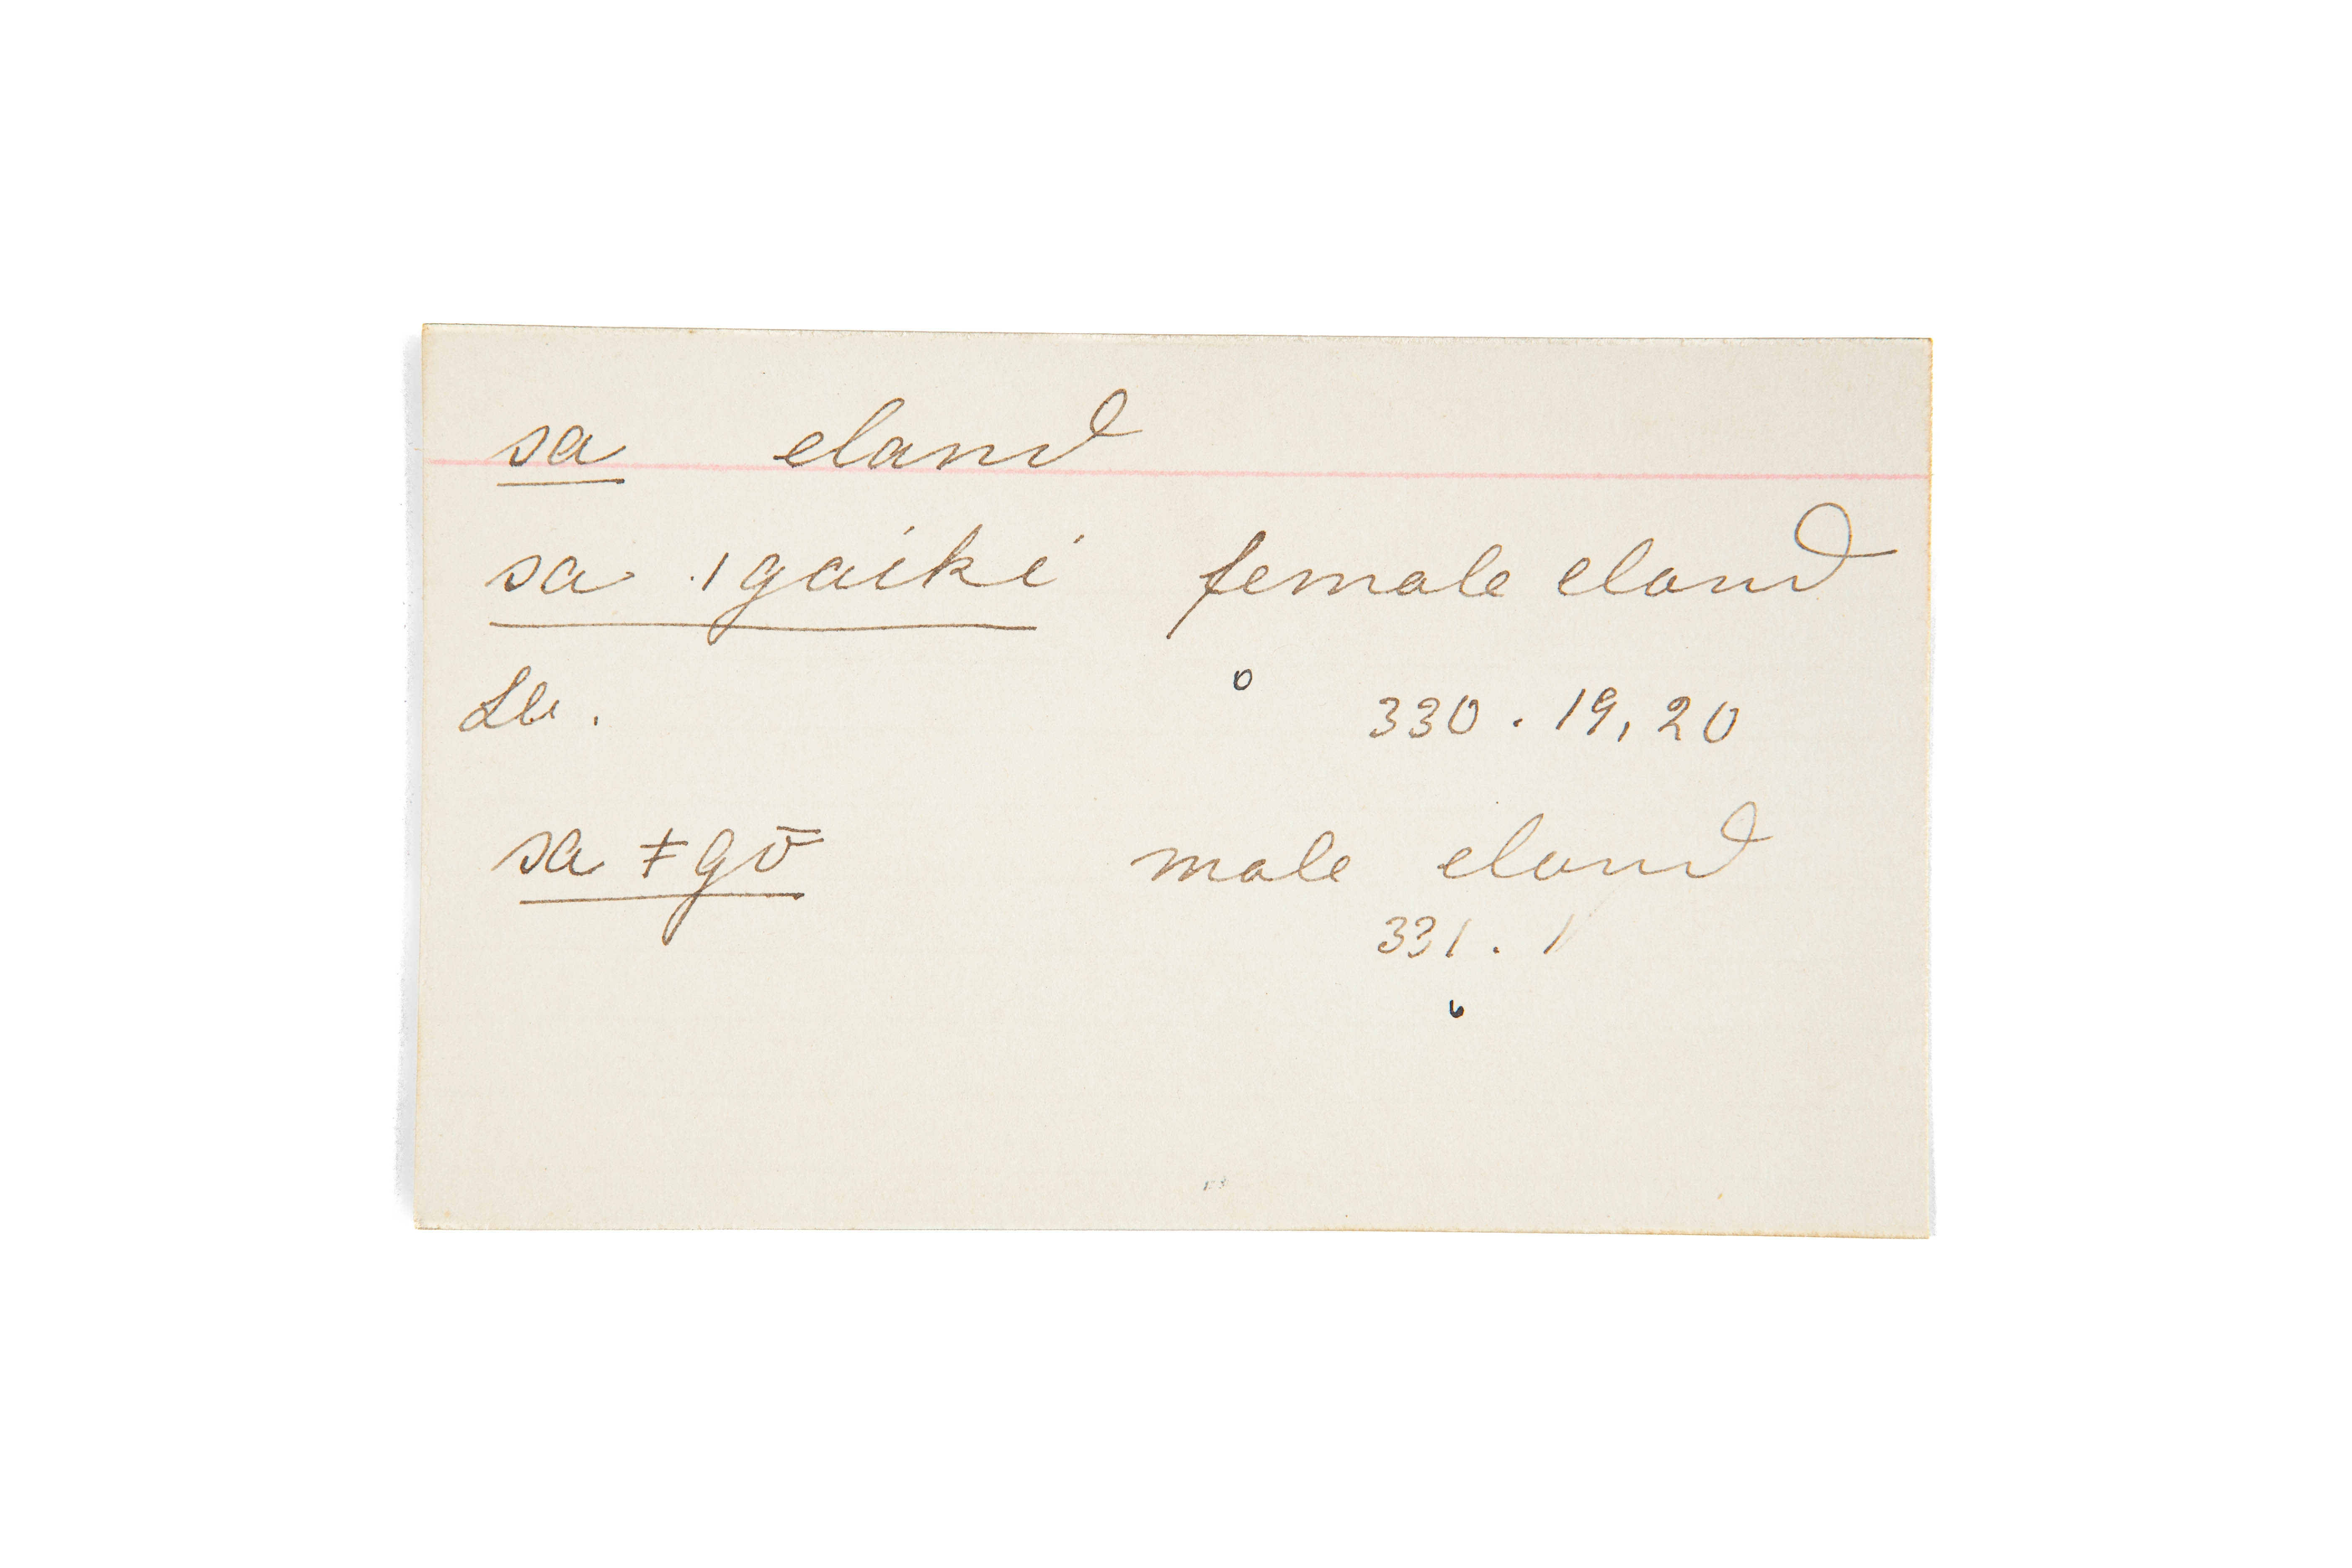 sa eland
sa ǀgaiki female eland
Ll. 330 . 19, 20
sa ǂgō male eland
331 . 1